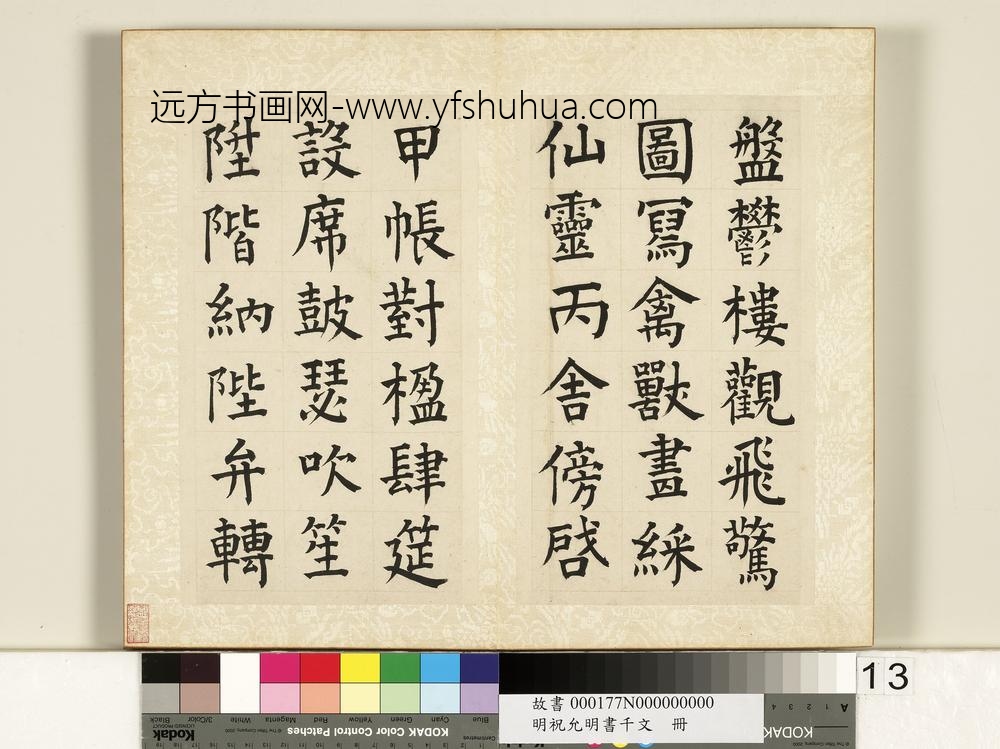 远方书画网-www.yfshuhua.com
盤鬱樓觀飛驚
圖寫禽獸畫綵
仙靈丙舍傍啓
甲帳對楹肆筵
設席鼓瑟吹笙
陞階納陛弁轉
13
故書 000177N000000000
明祝允明書千文 冊
Black
3/Color
White
Magenta
Red
Yellow
Green
Cyan
Blue
Kodak
LICENSED PRODUCT
© The Tiffen Company, 2000
KODAK Color Control Patches
Centimetres
KODAK
A 1 2 3 4